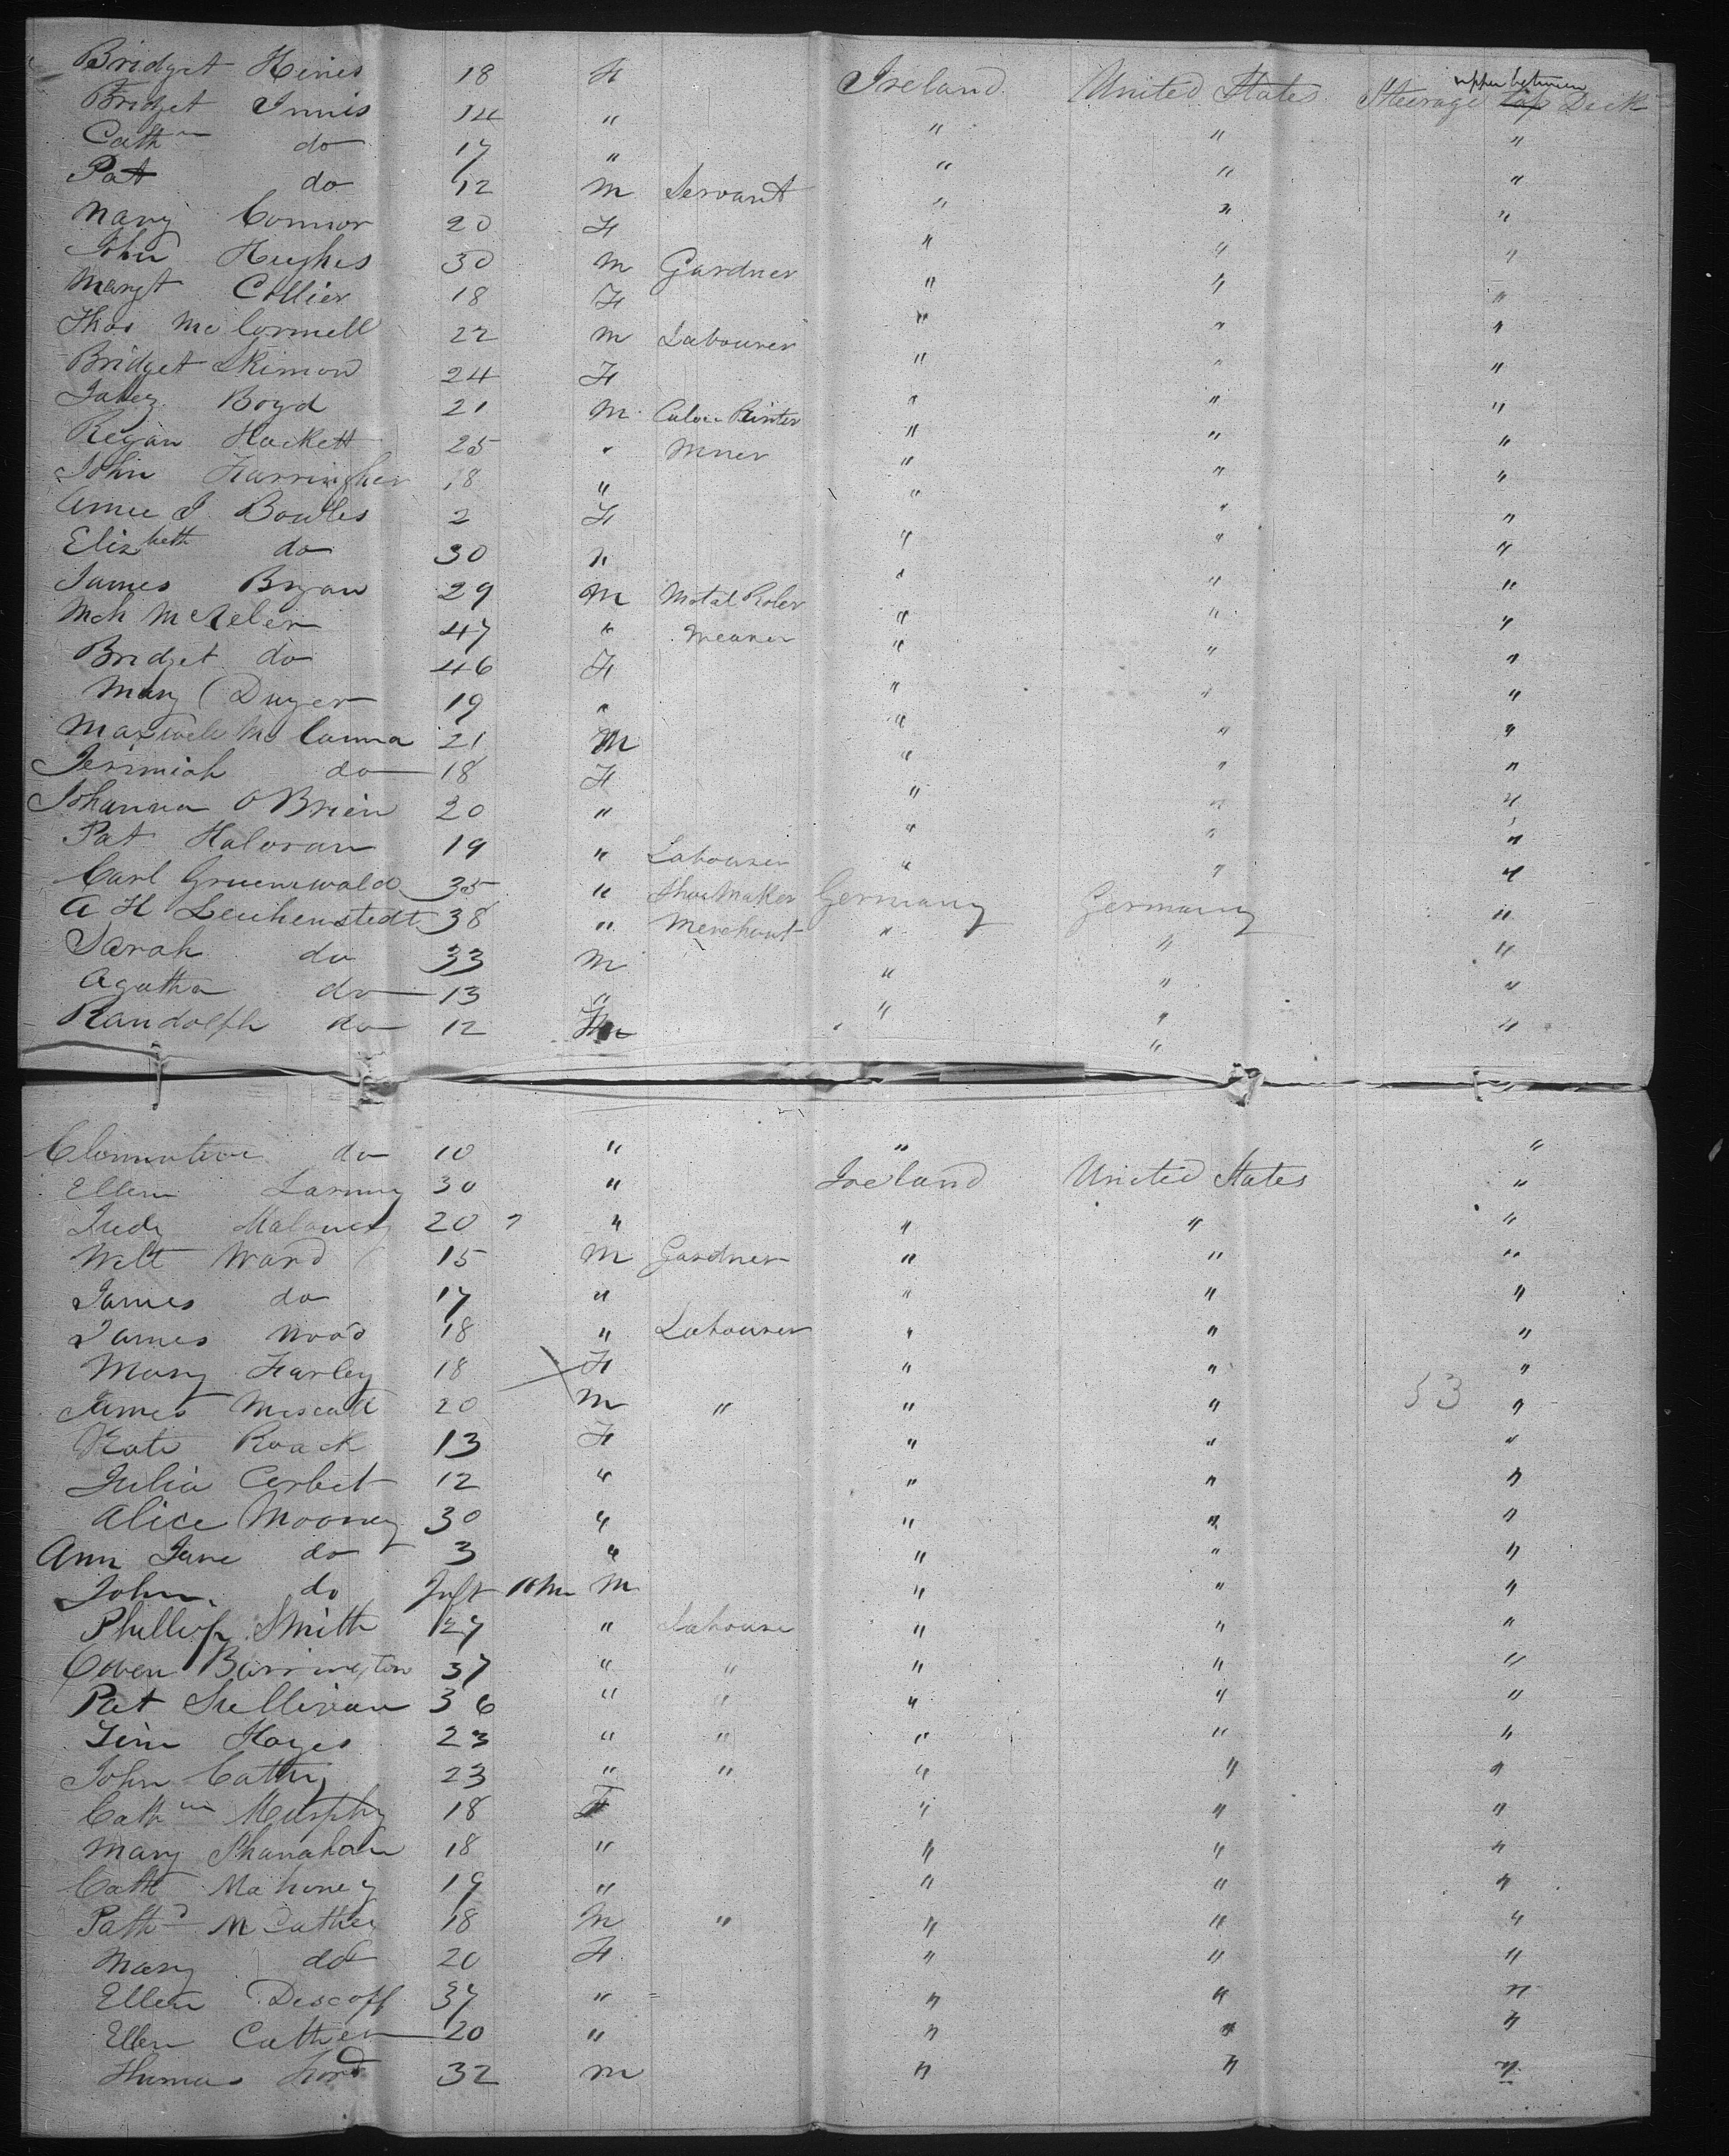 Bridget Hines 18 F Ireland United States Steerage upper between Deck
Bridget Innis 14 " " " "
Cath do 17 " " " "
Pat do 12 M Servant " " "
Nany Connor 20 F " " "
John Hughes 30 M Gardner " " "
Margt Collier 18 F " " "
Thos McConnell 22 M Labourer " " "
Bridget Skimon 24 F " " "
Boyd 21 M Printer " " "
Regan Hackett 25 " Miner " " "
John 18 " " " "
J. Bowles 2 F " " "
Elizbeth do 30 " " " "
James Bryan 29 M Metal Roler " " "
Mch 47 " Weaver " " "
Bridget do 46 F " " "
Mary Dwyer 19 " " " "
Maxwell McCanna 21 M " " "
Jerimiah do 18 F " " "
Johanna O Brien 20 " " " "
Pat Haloran 19 " Labourer " " "
Carl Gruenewald 35 " Shoe Maker Germany Germany "
A H Leichenstedt 38 " Merchant " " "
Sarah do 33 M " " "
Agatha do 13 " " " "
Randolph do 12 M " " "
do 10 " " "
Ellen 30 " Ireland United States "
Judy Maloney 20 " " " "
Ward 15 M Gardner " " "
James do 17 " " " "
James Wood 18 " Labourer " " "
Mary Farley 18 F " " "
James 20 M " " " 53 "
Kate Roack 13 F " " "
Julia Corbet 12 " " " "
Alice Mooney 30 " " " "
Ann Jane do 3 " " " "
John do Inft 10 M M " " "
Phillip Smith 27 " Labourer " " "
Owen Barrington 37 " " " " "
Pat Sullivan 36 " " " " "
Tim Hayes 23 " " " " "
John Cathy 23 " " " " "
Cath Murphy 18 F " " "
Mary Shanahan 18 " " " "
Cath Mahoney 19 " " " "
18 M " " " "
Mary do 20 F " " "
Ellen 37 " " " "
Ellen 20 " " " "
Thomas 32 M " " "